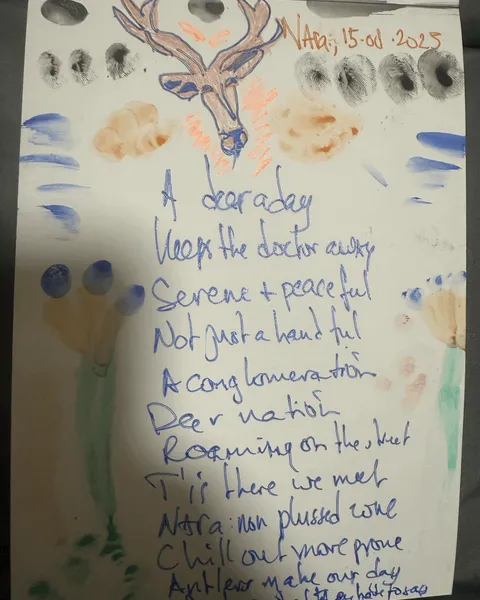 NAra, 15-Oct-2025
A deer a day
Keeps the doctor away
Serene + peaceful
Not just a handful
A conglomeration
Deer nation
Roaming on the street
T'is there we meet
NAra: non plussed zone
Chill out more prone
Antlers make our day
to say